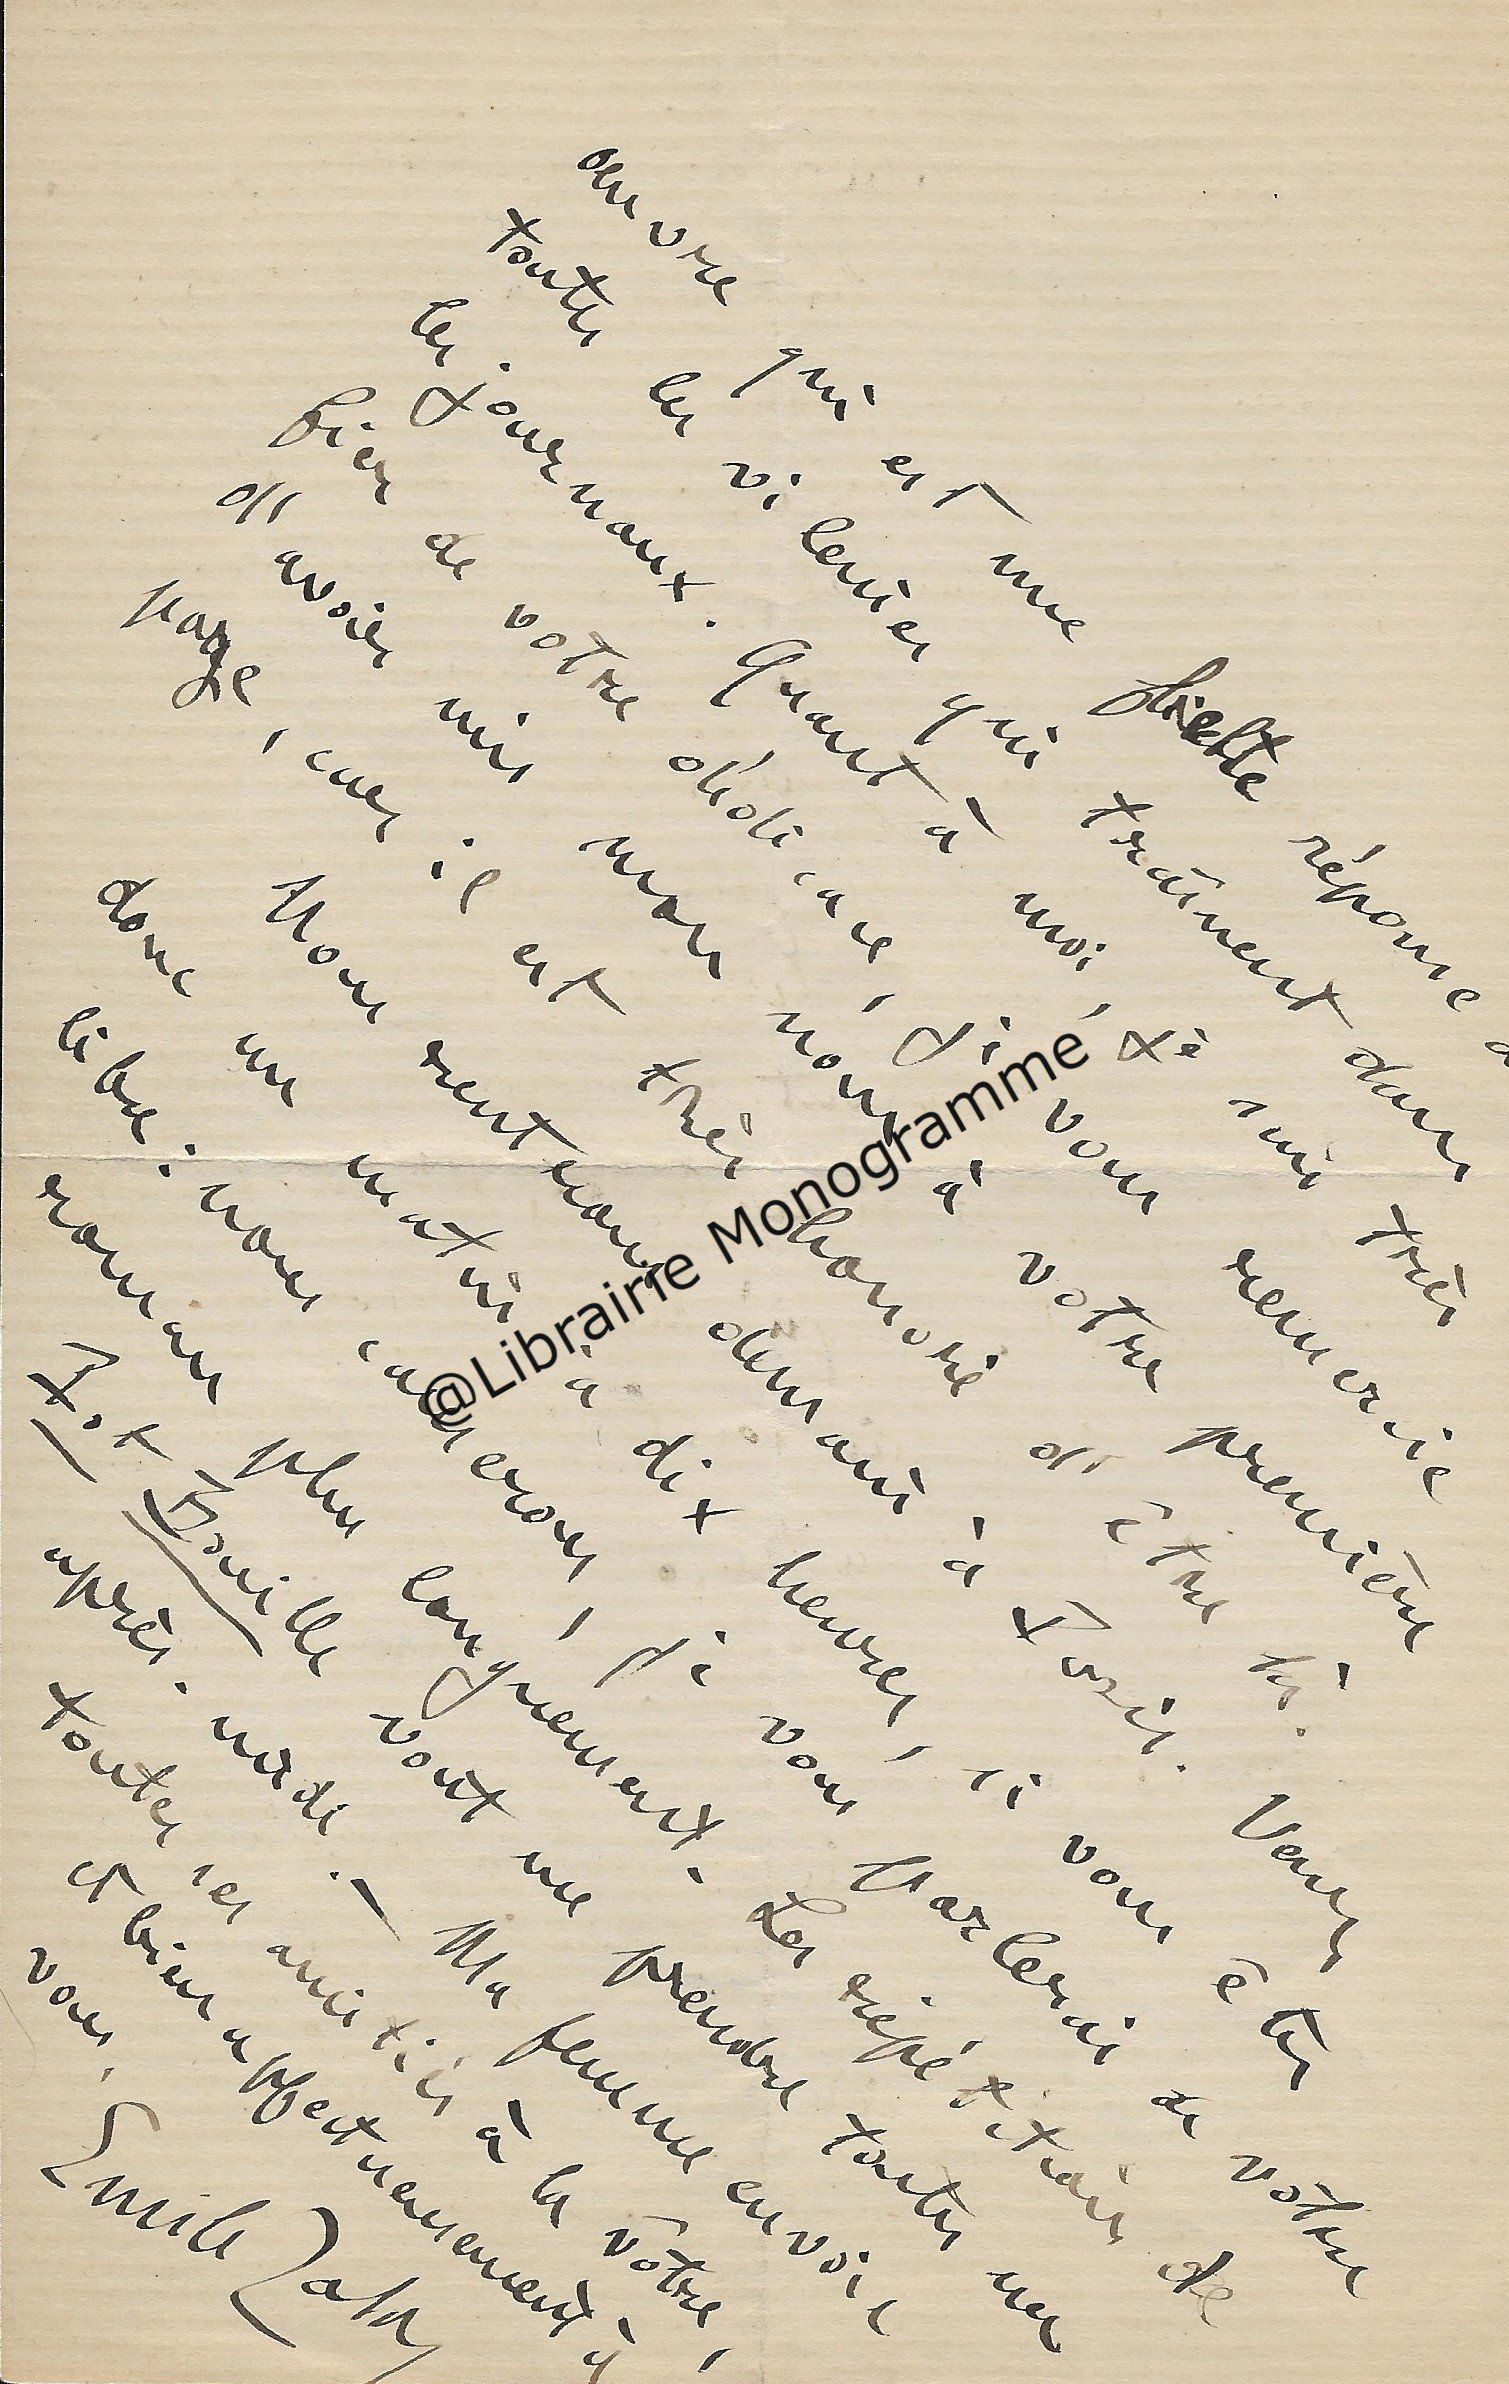 œuvre qui est une fière réponse à
toutes les vilenies qui traînent dans
les journaux. Quant à moi, je suis très
fier de votre dédicace, je vous remercie
d'avoir mis mon nom à votre première
page, car il est très honoré d'être là.
Nous rentrons demain à Paris. Venez
donc un matin à dix heures, si vous êtes
libre; nous causerons, je vous parlerai de votre
roman plus longuement. Les répétitions de
Pot Bouille vont me prendre toutes mes
après-midi. Ma femme envoie
toutes ses amitiés à la vôtre,
et bien affectueusement à
vous,
Emile Zola
@Librairie Monogramme